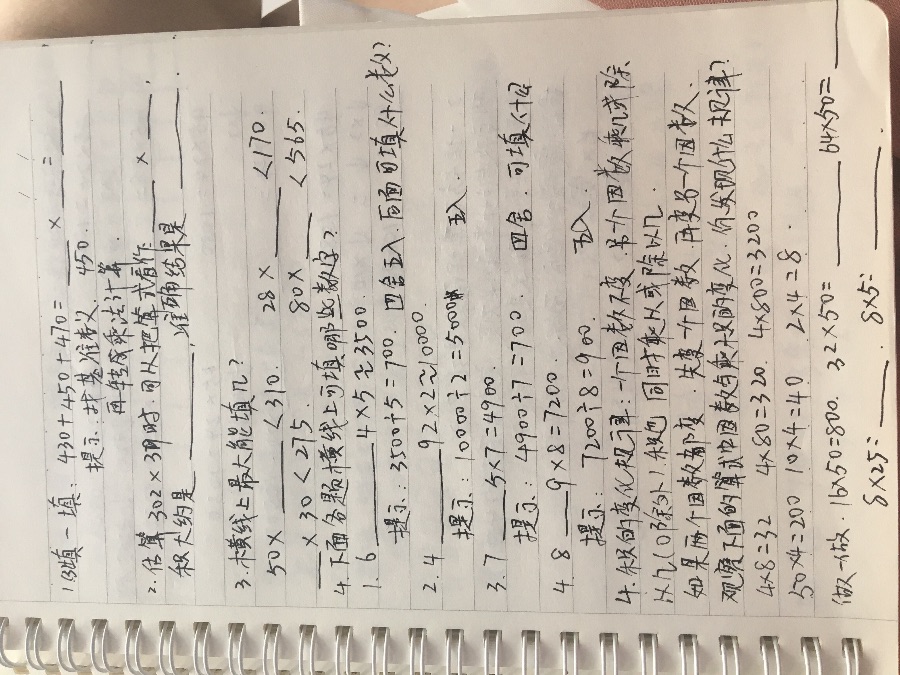 1.填一填: 430+450+470=____×____=____
提示:找基准数 450.
再转成乘法计算.
2.估算 302×39时 可以把算式看作____×____,
积大约是____,准确结果是____.
3.横线上最大能填几?
50×____<310. 28×____<170.
____×30<275. 80×____<565.
4.下面各题横线上可填哪些数字?
1. 6____4×5≈3500.
提示:3500÷5=700. 四舍五入.后面可填什么数?
2. 4____92×2≈10000
提示:10000÷2=5000 五入.
3. 7____5×7=4900.
提示:4900÷7=700 四舍.可填什么
4. 8____9×8=7200
提示: 7200÷8=900. 五入.
4.积的变化规律:一个因数不变.另外因数乘几或除
以几(0除外).积也同时乘以或除以几.
如果两个因数都变.先变一个因数.再变另一个因数.
观察下面的算式中因数与乘积的变化.你发现什么规律?
4×8=32 4×80=320 4×800=3200
50×4=200 10×4=40 2×4=8.
做一做. 16×50=800. 32×50=____ 64×50=____
8×25=____. 8×5=____.